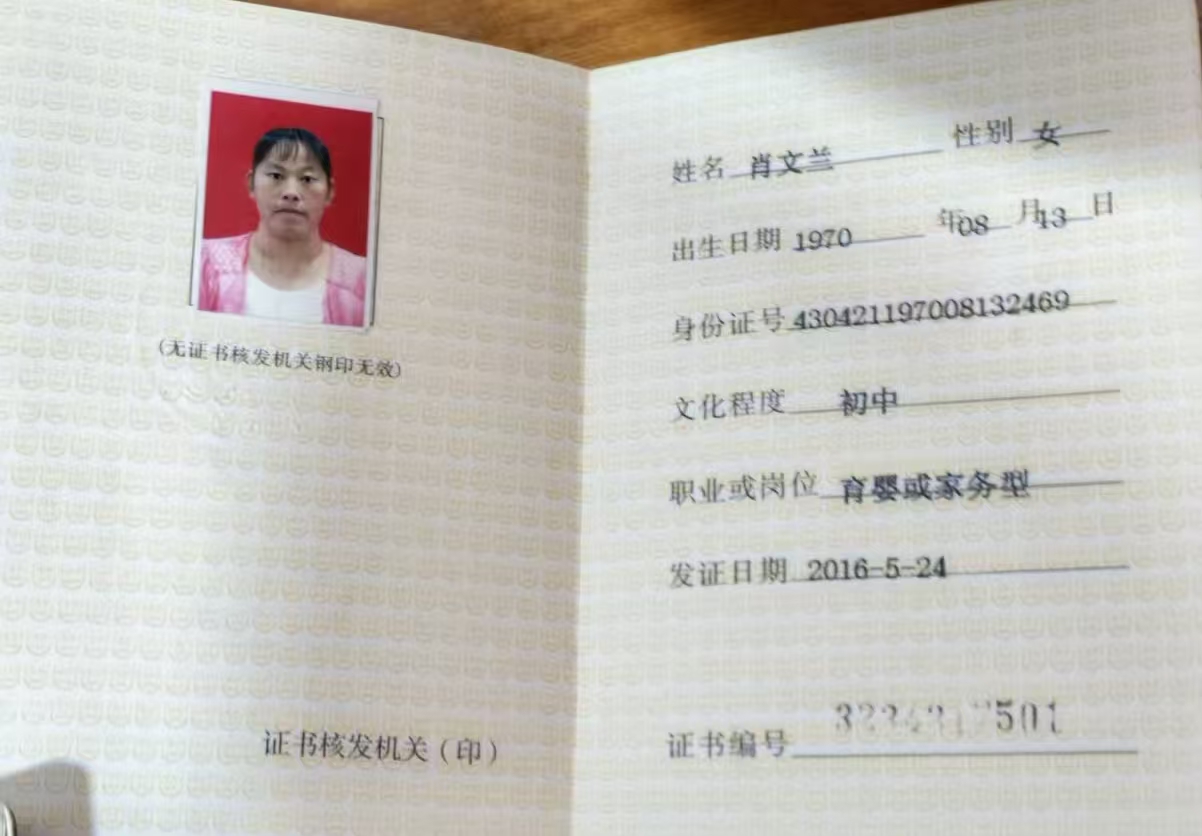 (无证书核发机关钢印无效)
证书核发机关(印)
姓名 肖文兰 性别 女
出生日期 1970 年08 月13 日
身份证号 430421197008132469
文化程度 初中
职业或岗位 育婴或家务型
发证日期 2016-5-24
证书编号